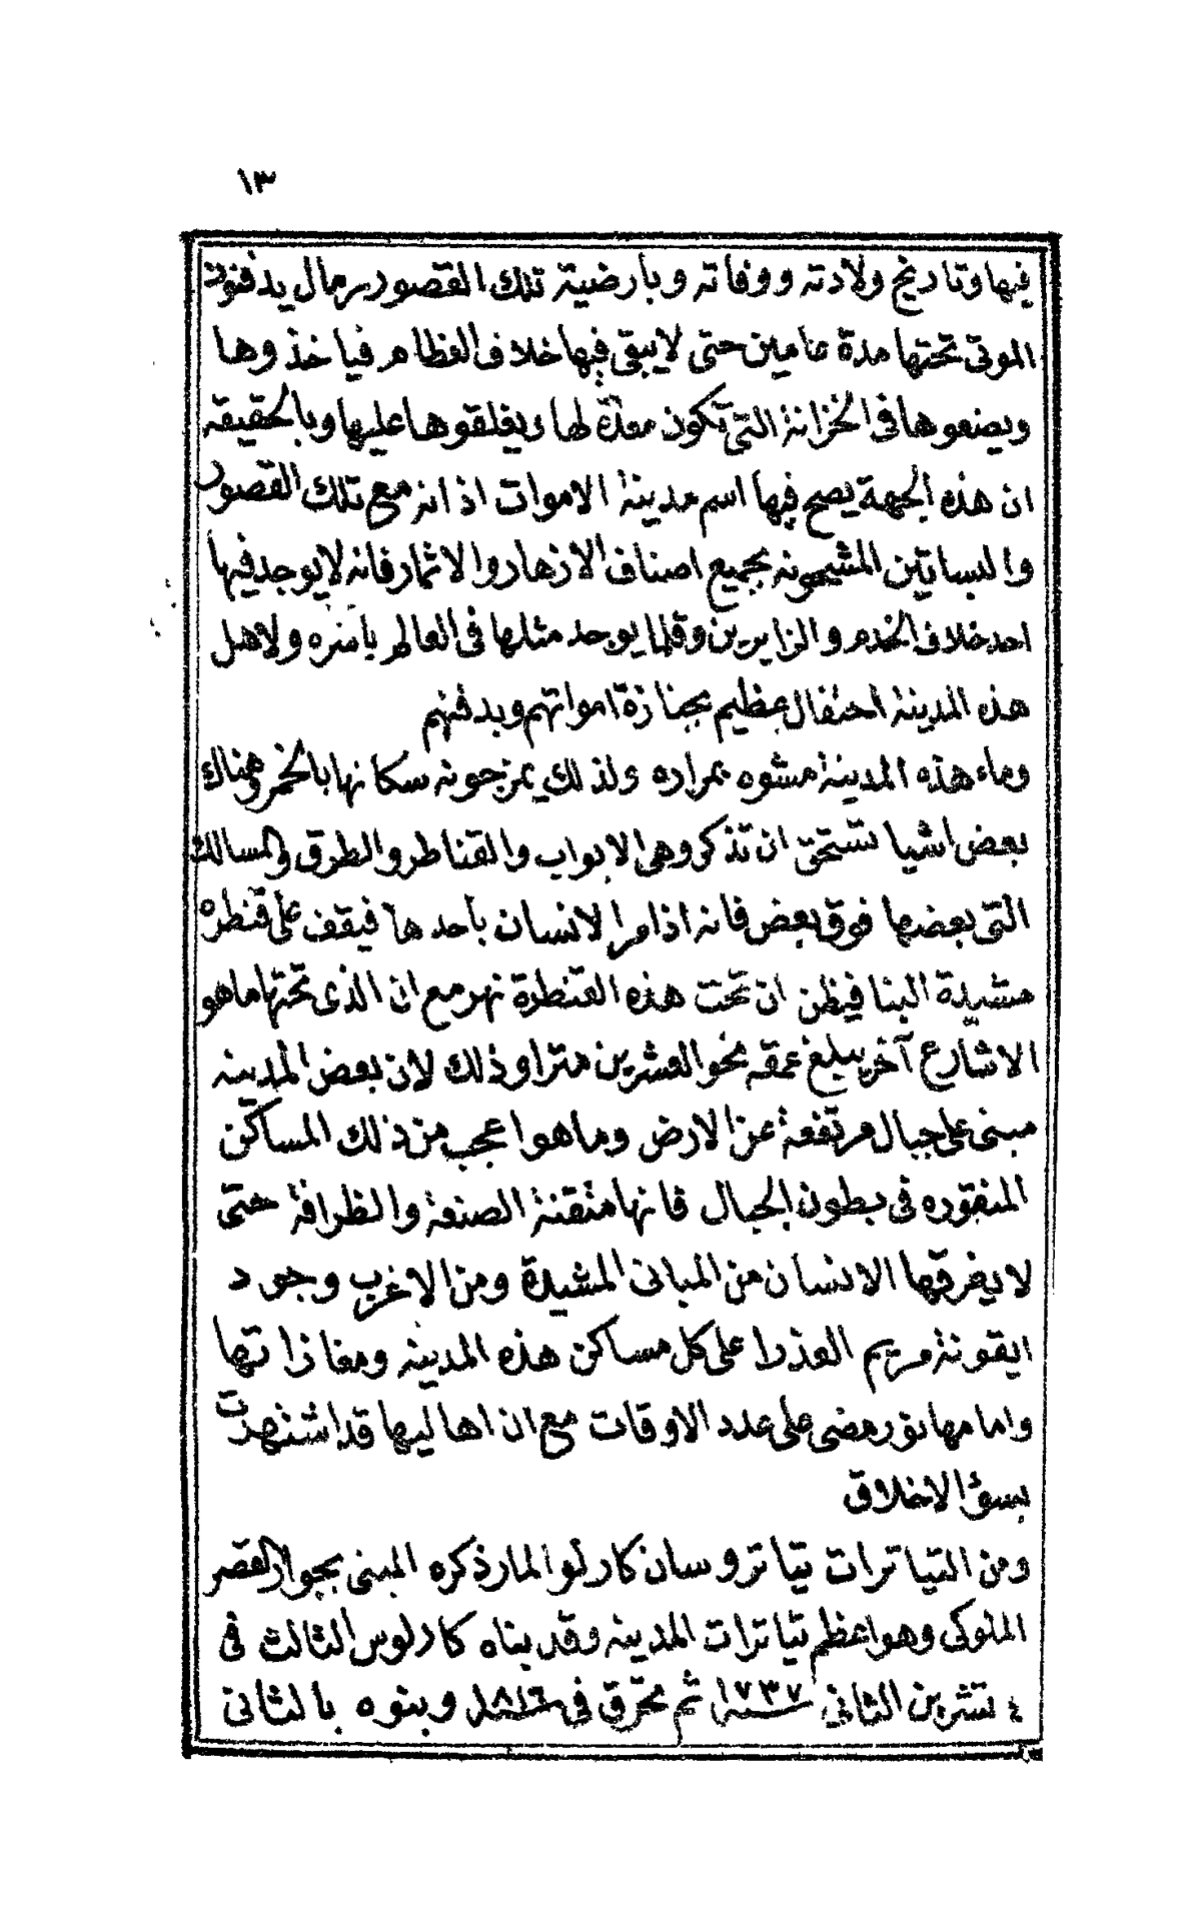 ١٣
فيها وتاريخ ولادته ووفاته وبأرضية تلك القصور رمال يدفنون
الموتى تحتها مدة عامين حتى لا يبقى فيها خلاف العظام فياخذوها
ويضعوها فى الخزانة التى تكون معدّة لها ويغلقوها عليها وبالحقيقة
ان هذه الجهة يصح فيها اسم مدينة الاموات اذ انه مع تلك القصور
والبساتين المشحونه بجميع اصناف الازهار والاثمار فانه لا يوجد فيها
احد خلاف الخدم والزايرين وقلما يوجد مثلها فى العالم بأسره ولاهل
هذه المدينة احتفال عظيم بجنازة امواتهم وبدفنهم
وماء هذه المدينة مشوه بمراره ولذلك يمزجونه سكانها بالخمر وهناك
بعض اشيا تستحق ان تذكر وهى الابواب والقناطر والطرق والمسالك
التى بعضها فوق بعض فانه اذا مر الانسان بأحدها فيقف على قنطره
مشيدة البنا فيظن ان تحت هذه القنطرة نهر مع ان الذى تحتها ما هو
الا شارع آخر يبلغ عمقه نحو العشرين مترا وذلك لان بعض المدينه
مبنى على جبال مرتفعة عن الارض وما هو اعجب من ذلك المساكن
المنقوره فى بطون الجبال فانها متقنة الصنعة والظرافة حتى
لا يفرقها الانسان من المبانى المشيدة ومن الاغرب وجود
ايقونة مريم العذرا على كل مساكن هذه المدينه ومغازاتها
وامامها نور مضى على عدد الاوقات مع ان اهاليها قد اشتهرت
بسؤ الاخلاق
ومن التياترات تياترو سان كارلو المار ذكره المبنى بجوار القصر
الملوكى وهو اعظم تياترات المدينه وقد بناه كارلوس الثالث فى
٤ تشرين الثانى سنة ١٧٣٧ ثم تحرق فى سنة ١٨١٦ وبنوه بالثانى